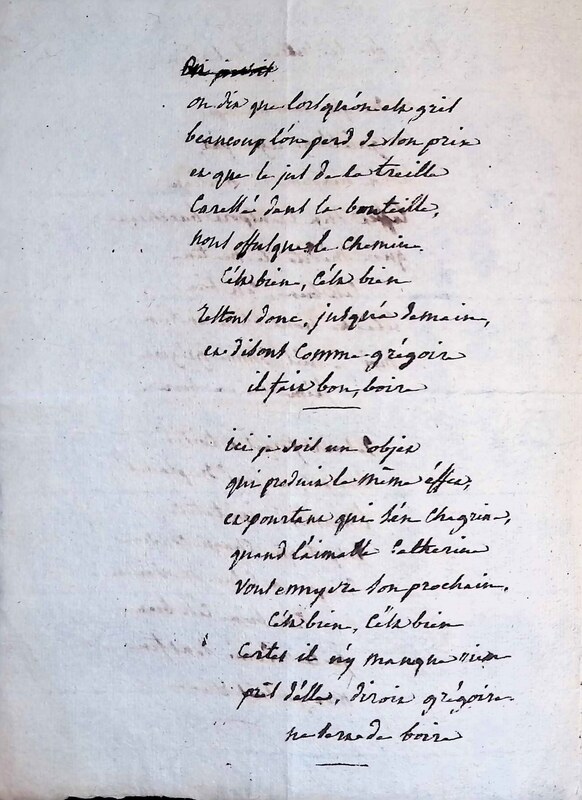 on dit que lorsqu'on est gris
beaucoup l'on perd de son prix
et que le jus de la treille
Caressé dans la bouteille,
nous offusque le chemin.
C'est bien, C'est bien
restons donc, jusqu'a demain,
et disons Comme grégoire
il fait bon, boire
ici je vois un objet
qui produit le même éffet,
et pourtant qui s'en chagrine,
quand l'aimable Catherine
vous ennyvre son prochain.
C'est bien, C'est bien
Certes il n'y manque rien
près d'elle, diroit grégoire
ne de boire